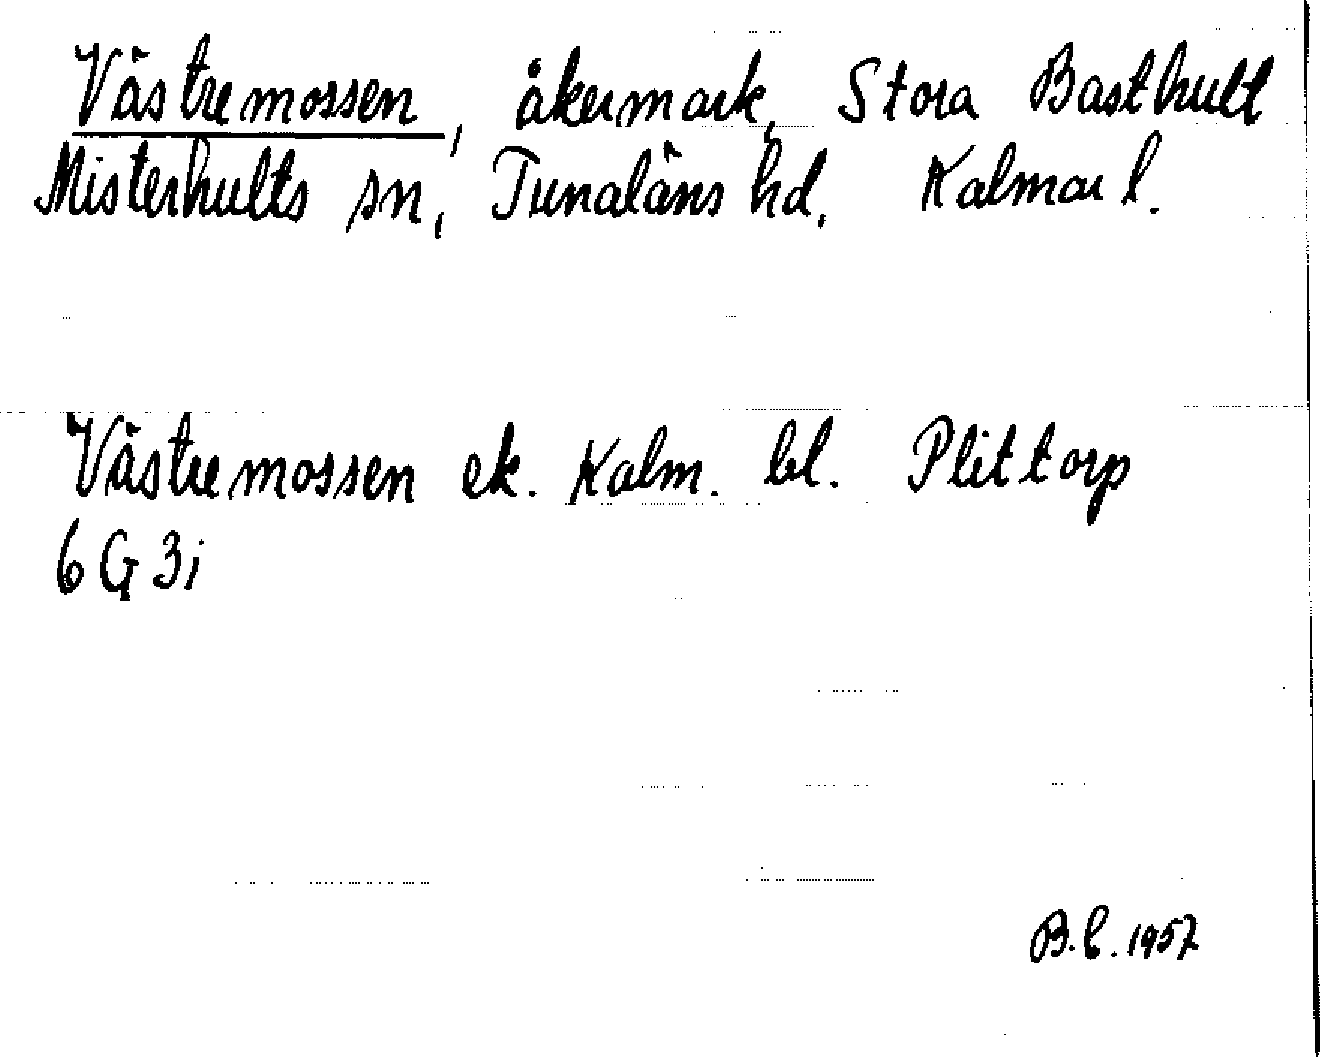 Västremossen, åkermark, Stora Basthult
Misterhults sn, Tunaläns hd, Kalmar l.
Västremossen ek. Kalm. bl. Plittorp
6G3i
B.C. 1957